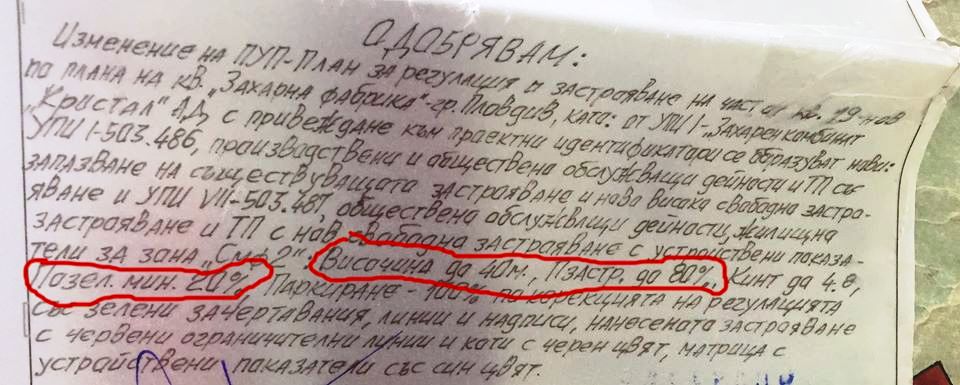 ОДОБРЯВАМ:
Изменение на ПУП-План за регулация и застрояване на част от кв. 19-нов
по плана на кв. „Захарна фабрика"-гр. Пловдив, като: от УПИ I-„Захарен комбинат
„Кристал" АД, с привеждане към проектни идентификатори се образуват нови:
УПИ I-503.486, производствени и обществено обслужващи дейности и ТП със
запазване на съществуващата застрояване и нова висока свободна застро-
яване и УПИ VII-503.487, обществено обслужващи дейности, жилищно
застрояване и ТП с нов свободно застрояване с устройствени показа-
тели за зона „Смф2": Височина до 40м., Пзастр. до 80%, Кинт до 4.0,
Позел. мин. 20%, Паркиране - 100% по корекцията на регулацията
със зелени зачертавания, линии и надписи, нанесената застрояване
с червени ограничителни линии и коти с черен цвят, матрица с
устройствени показатели със син цвят.